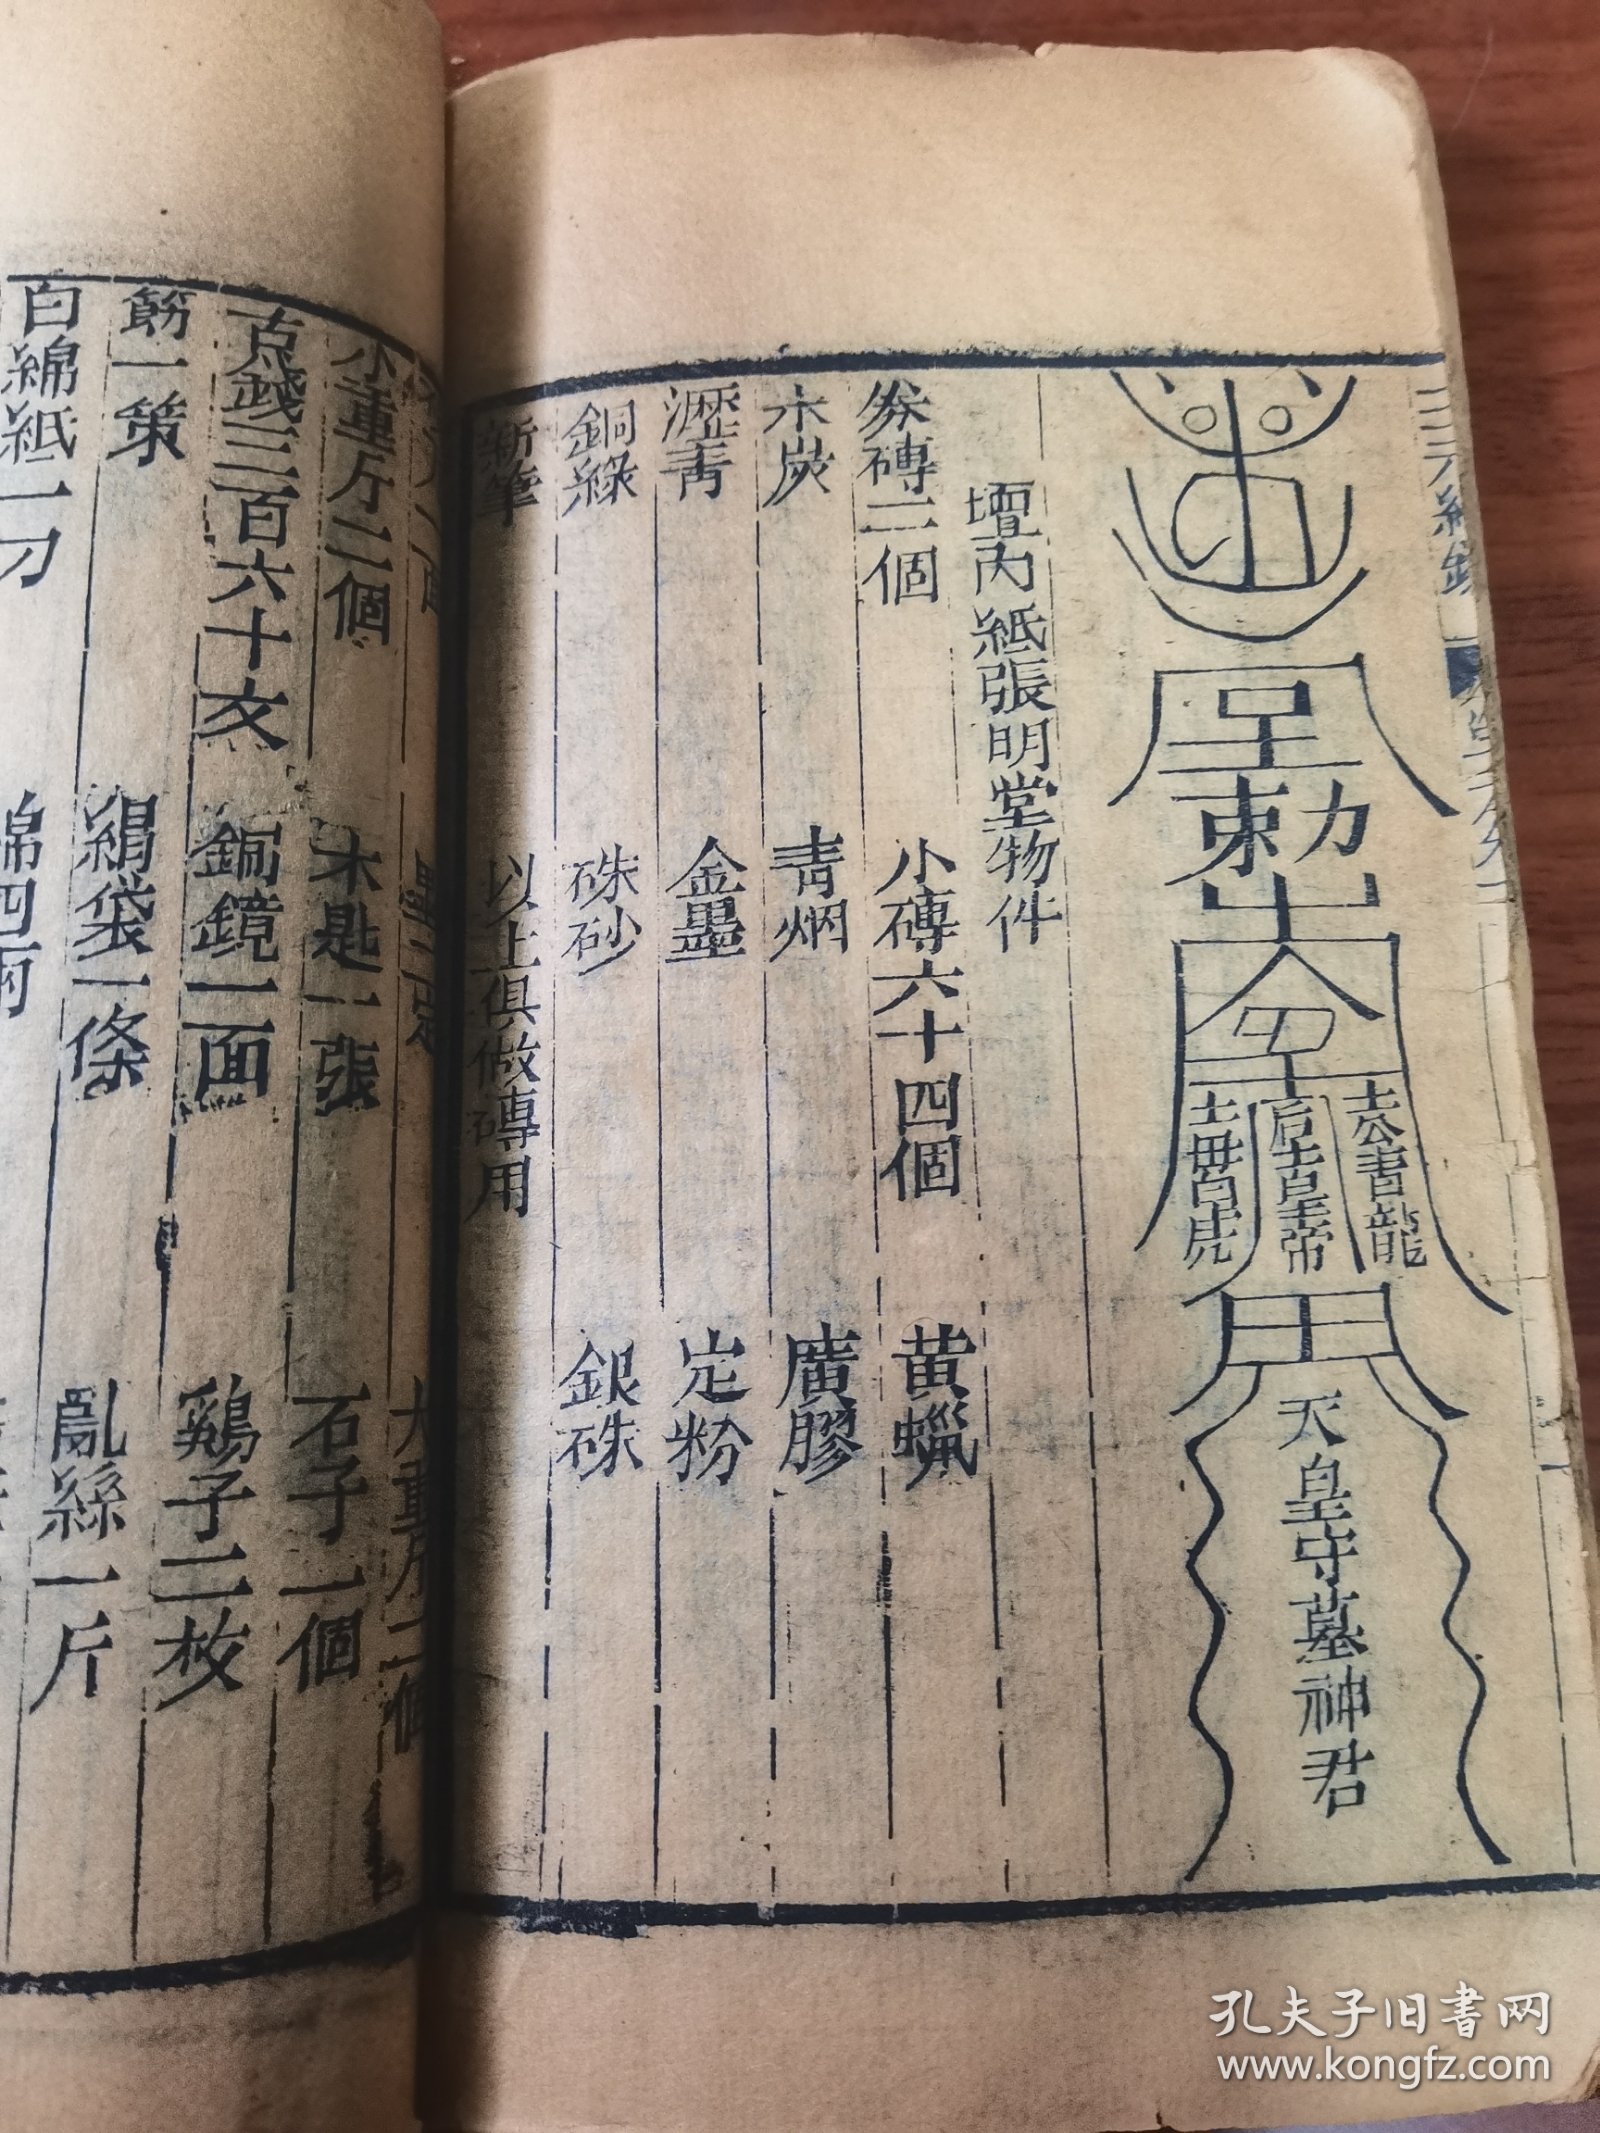 勅
令
土公青龍
后土皇帝
土母白虎
天皇守墓神君
壇內紙張明堂物件
券磚二個 小磚六十四個 黄蠟
木炭 青烟 廣膠
瀝青 金墨 定粉
銅綠 硃砂 銀硃
新筆 以上俱做磚用
木匙一張 石子一個
小車斤二個
百六十文 銅鏡一面 鷄子二枚
筯一策 絹袋一條 亂絲一斤
白綿紙一刀 綿四兩
孔夫子旧書网
www.kongfz.com